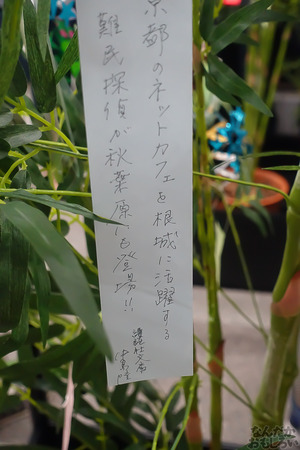 京都のネットカフェを根城に活躍する
難民探偵が秋葉原にも登場!!
講談社文庫